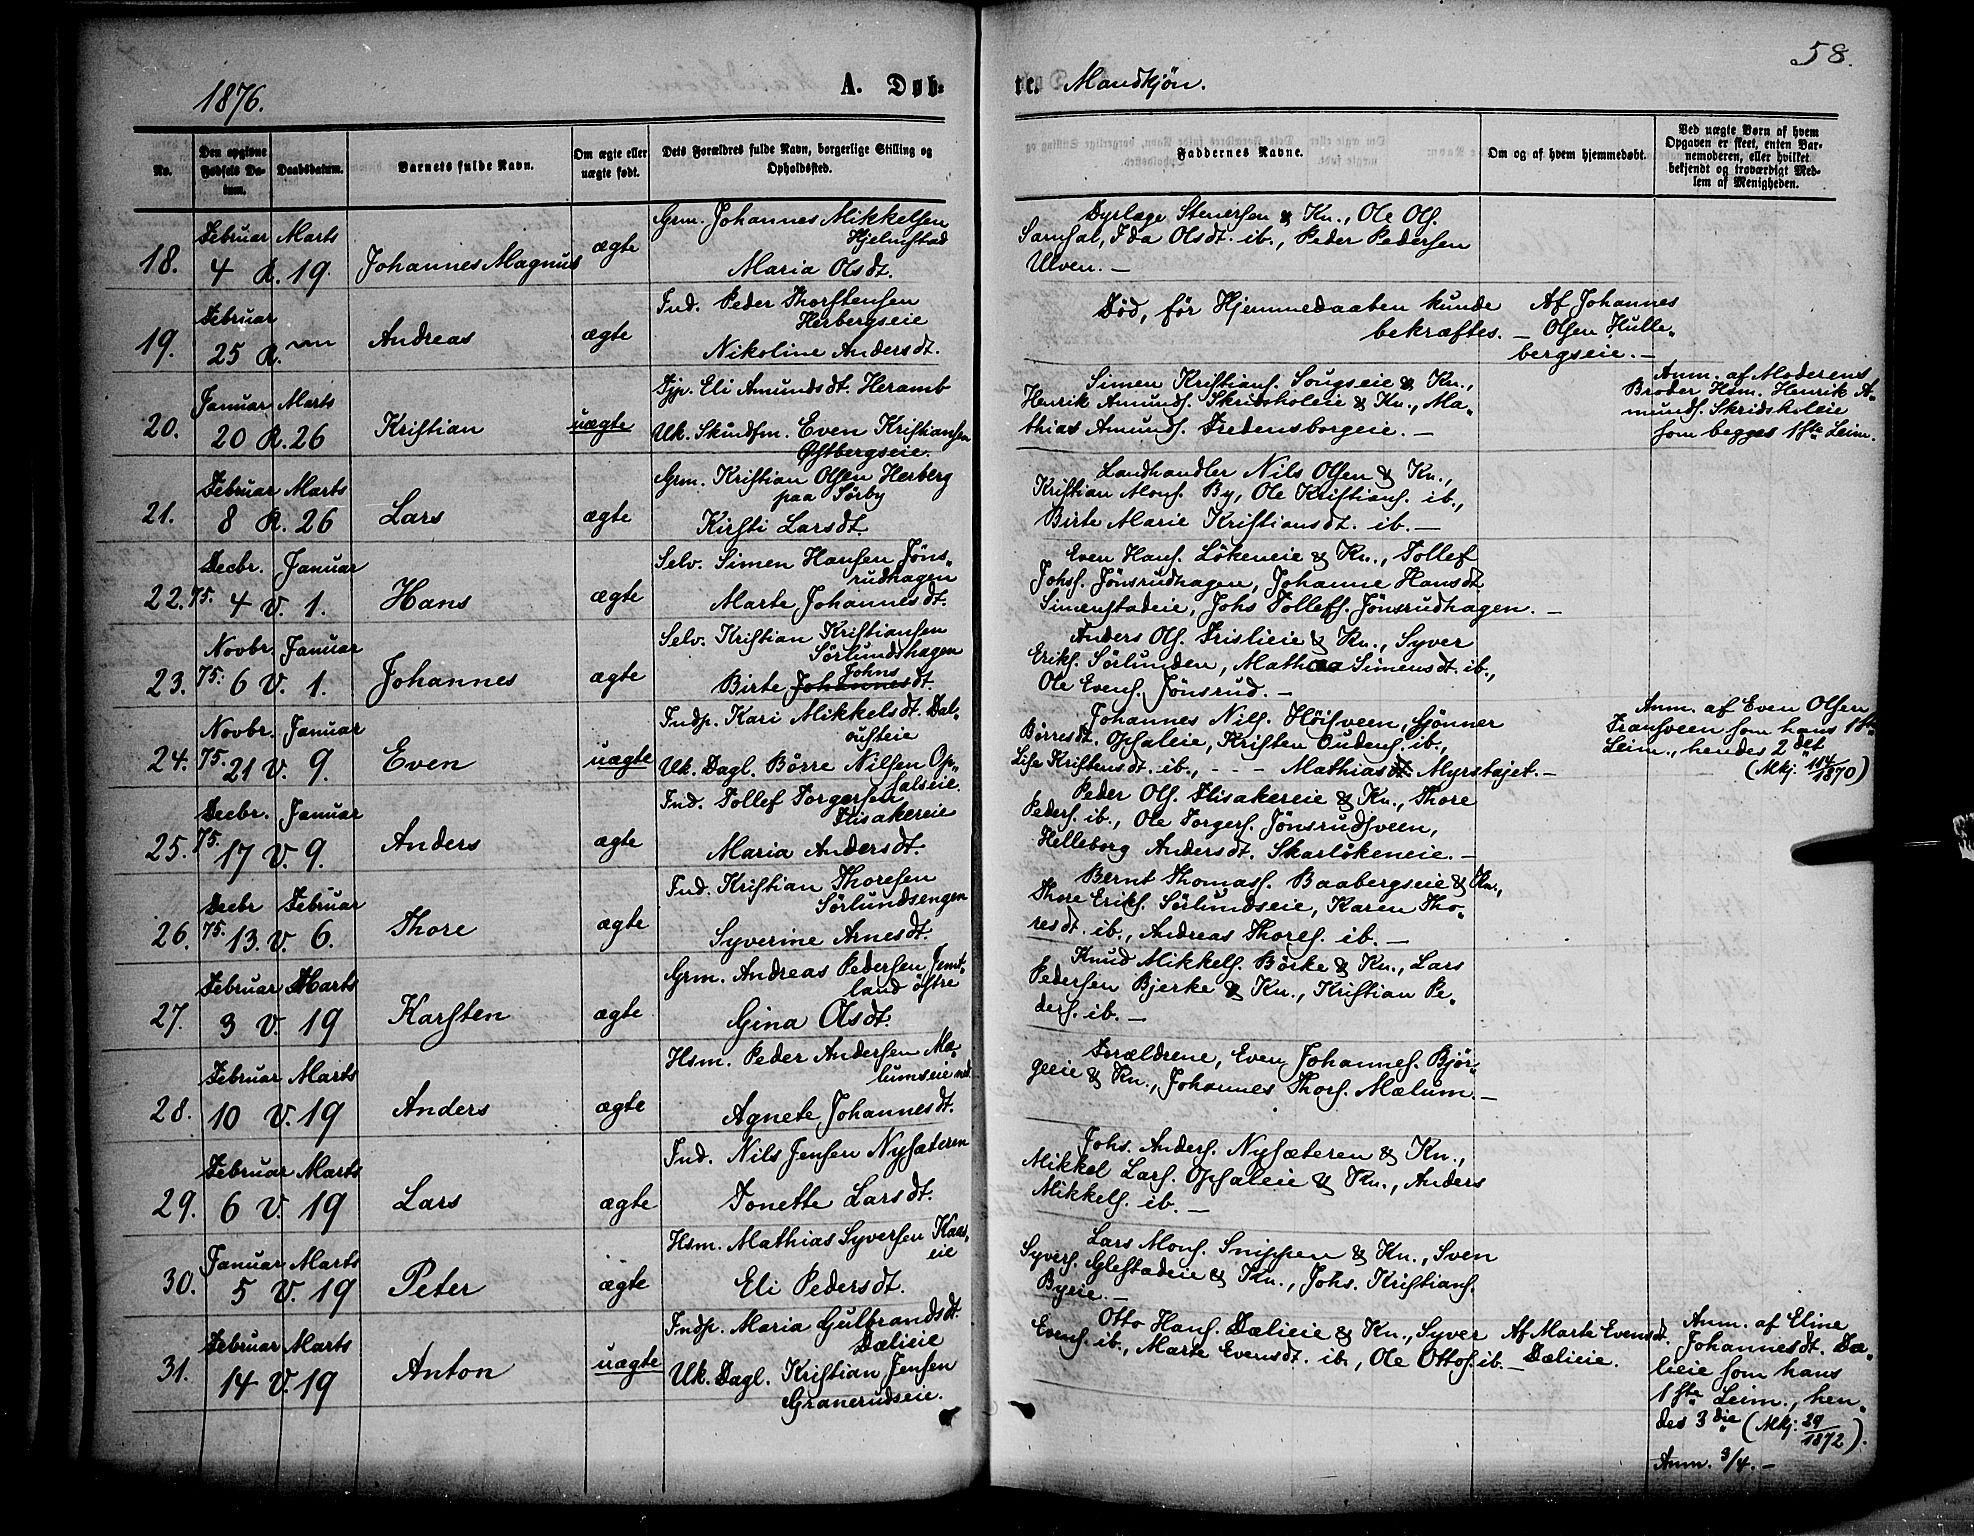 58.
1876.
A. Døb-
te. Mandkjøn.
No.
Den opgivne Fødsels Datum.
Daabsdatum.
Barnets fulde Navn.
Om ægte eller uægte født.
Dets Forældres fulde Navn, borgerlige Stilling og Opholdssted.
Faddernes Navne.
Om og af hvem hjemmedøbt.
Ved uægte Børn af hvem
Opgaven er skeet, enten Bar-
nemoderen, eller hvilket
bekjendt og troværdigt Med-
lem af Menigheden.
18. Februar 4 R. Marts 19. Johannes Magnus ægte
Grm. Johannes Mikkelsen
Hjelmstad
Maria Olsdt.
Dyrlæge Stenersen & Kn., Ole Ols.
Samsal, Ida Olsdt. ib., Peder Pedersen
Ulven. —
19. Februar 25 R. Andreas ægte
Ind. Peder Thorstensen
Herbergseie
Nikoline Andersdt.
Død, før Hjemmedaaben kunde
bekræftes. —
Af Johannes
Olsen Hulle-
bergseie. —
20. Januar 20 R. Marts 26 Kristian uægte
Pjp. Eli Amundsdt. Heramb
Uk. Skindfm. Even Kristiansen
Østbergseie.
Simen Kristians. Sougseie & Kn.,
Henrik Amunds. Skridsholeie & Kn., Ma-
thias Amunds. Fredensborgeie. —
Anm. af Moderens
Broder Hsm. Henrik A-
munds. Skridsholeie
som begges 1ste Leim.
21. Februar 8 R. Marts 26 Lars ægte
Grm. Kristian Olsen Herberg
paa Sørby
Kirsti Larsdt.
Landhandler Nils Olsen & Kn.,
Kristian Mons. By, Ole Kristians. ib.,
Birte Marie Kristiansdt. ib. —
22. Decbr. 75. 4 V. Januar 1. Hans ægte
Selv. Simen Hansen Jøns-
rudhagen
Marte Johannesdt.
Even Hans. Løkeneie & Kn., Tollef
Johs. Jønsrudhagen, Johanne Hansdt.
Simenstadeie, Johs Tollefs. Jønsrudhagen. —
23. Novbr. 75. 6 V. Januar 1. Johannes ægte
Selv. Kristian Kristiansen
Sørlundshagen
Johns
Birte Johannesdt.
Anders Ols. Frislieie & Kn., Syver
Eriks. Sørlunden, Mathea Simensdt. ib.,
Ole Evens. Jønsrud. —
24. Novbr. 75. 21 V. Januar 9. Even uægte
Indp. Kari Mikkelsdt. Dal-
ousteie
Uk. Dagl. Børre Nilsen Op-
salseie.
Johannes Nils. Høisveen, Gjønner
Børresdt. Opsaleie, Kristen Oudens. ib.,
Lise Kristensdt. ib., - - - Mathiasdt. Myrstajet. —
Anm. af Even Olsen
Fransveen som hans 1ste
Leim., hendes 2det
(Mkj. 114/1870)
25. Decbr. 75. 17 V. Januar 9. Anders ægte
Ind. Tollef Torgersen
Flisakereie
Maria Andersdt.
Peder Ols. Flisakereie & Kn., Thore
Peders. ib., Ole Torgers. Jønsrudsveen,
Helleborg Andersdt. Skarløkeneie. —
26. Decbr 75. 13. V. Februar 6. Thore ægte
Ind. Kristian Thoresen
Sørlundsengen
Syverine Arnesdt.
Bernt Thomass. Baabergseie & Kn.,
Thore Eriks. Sørlundseie, Karen Tho-
resdt. ib., Andreas Thores. ib. —
27. Februar 3 V. Marts 19 Karsten ægte
Grm. Andreas Pedersen Jemt-
land østre
Gina Olsdt.
Knud Mikkels. Børke & Kn., Lars
Pedersen Bjerke & Kn., Kristian Pe-
ders. ib. —
28. Februar 10 V. Marts 19 Anders ægte
Hsm. Peder Andersen Mæ-
lumseie ned.
Agnete Johannesdt.
Forældrene, Even Johannes. Bjør-
geeie & Kn., Johannes Thors. Mælum. —
29. Februar 6 V. Marts 19 Lars ægte
Ind. Nils Jensen Nysæteren
Tonette Larsdt.
Johs. Anders. Nysæteren & Kn.,
Mikkel Lars. Opsaleie & Kn., Anders
Mikkels. ib. —
30. Januar 5 V. Marts 19 Peter ægte
Hsm. Mathias Syversen Kaas-
eie
Eli Pedersdt.
Lars Mons. Snippen & Kn., Sven
Syvers. Glestadeie & Kn., Johs. Kristians.
Byeie. —
31. Februar 14 V. Marts 19 Anton uægte
Indp. Maria Gulbrandsdt.
Dælieie
Uk. Dagl. Kristian Jensen
Granerudseie.
Otto Hans. Dælieie & Kn., Syver
Evens. ib., Marte Evensdt. ib., Ole Ottos. ib. —
Af Marte Evensdt.
Dælieie.
Anm. af Eline
Johannesdt. Dæ-
lieie som hans
1ste Leim., hen-
des 3die (Mkj. 29/1872).
Anm. 3/4. —